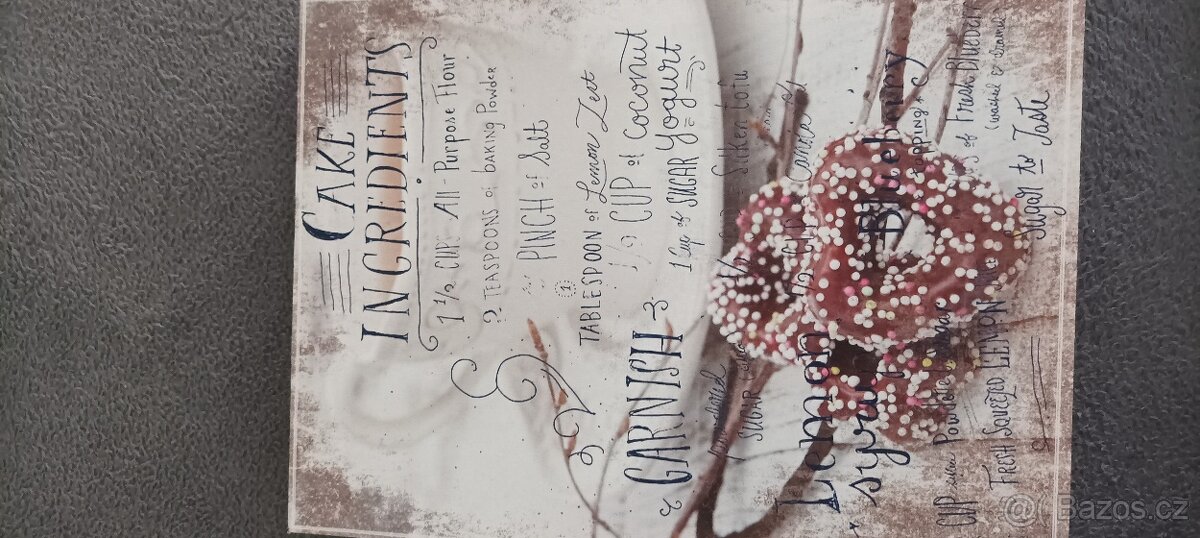 CAKE
INGREDIENTS
1 1/2 CUP: All-Purpose Flour
2 TEASPOONS of bAKING Powder
PINCH of Salt
(1)
TABLESPOON of Lemon Zest
1/2 CUP of Coconut
1 Cup of SUGAR Yogurt
GARNISH
SUGAR
Silken Tofu
1/2 CUP
Lemon
syrup
Blueberry
TOPPING
CUP Powdered Sugar
of Fresh Blueberr
FRESH SQUEEZED LEMON
Sugar to Taste
Bazos.cz